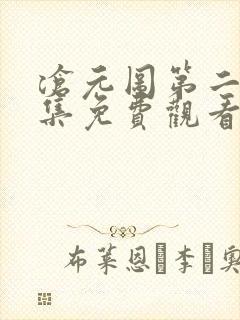 滄元圖第二
集免費觀看
布萊恩·李·奧